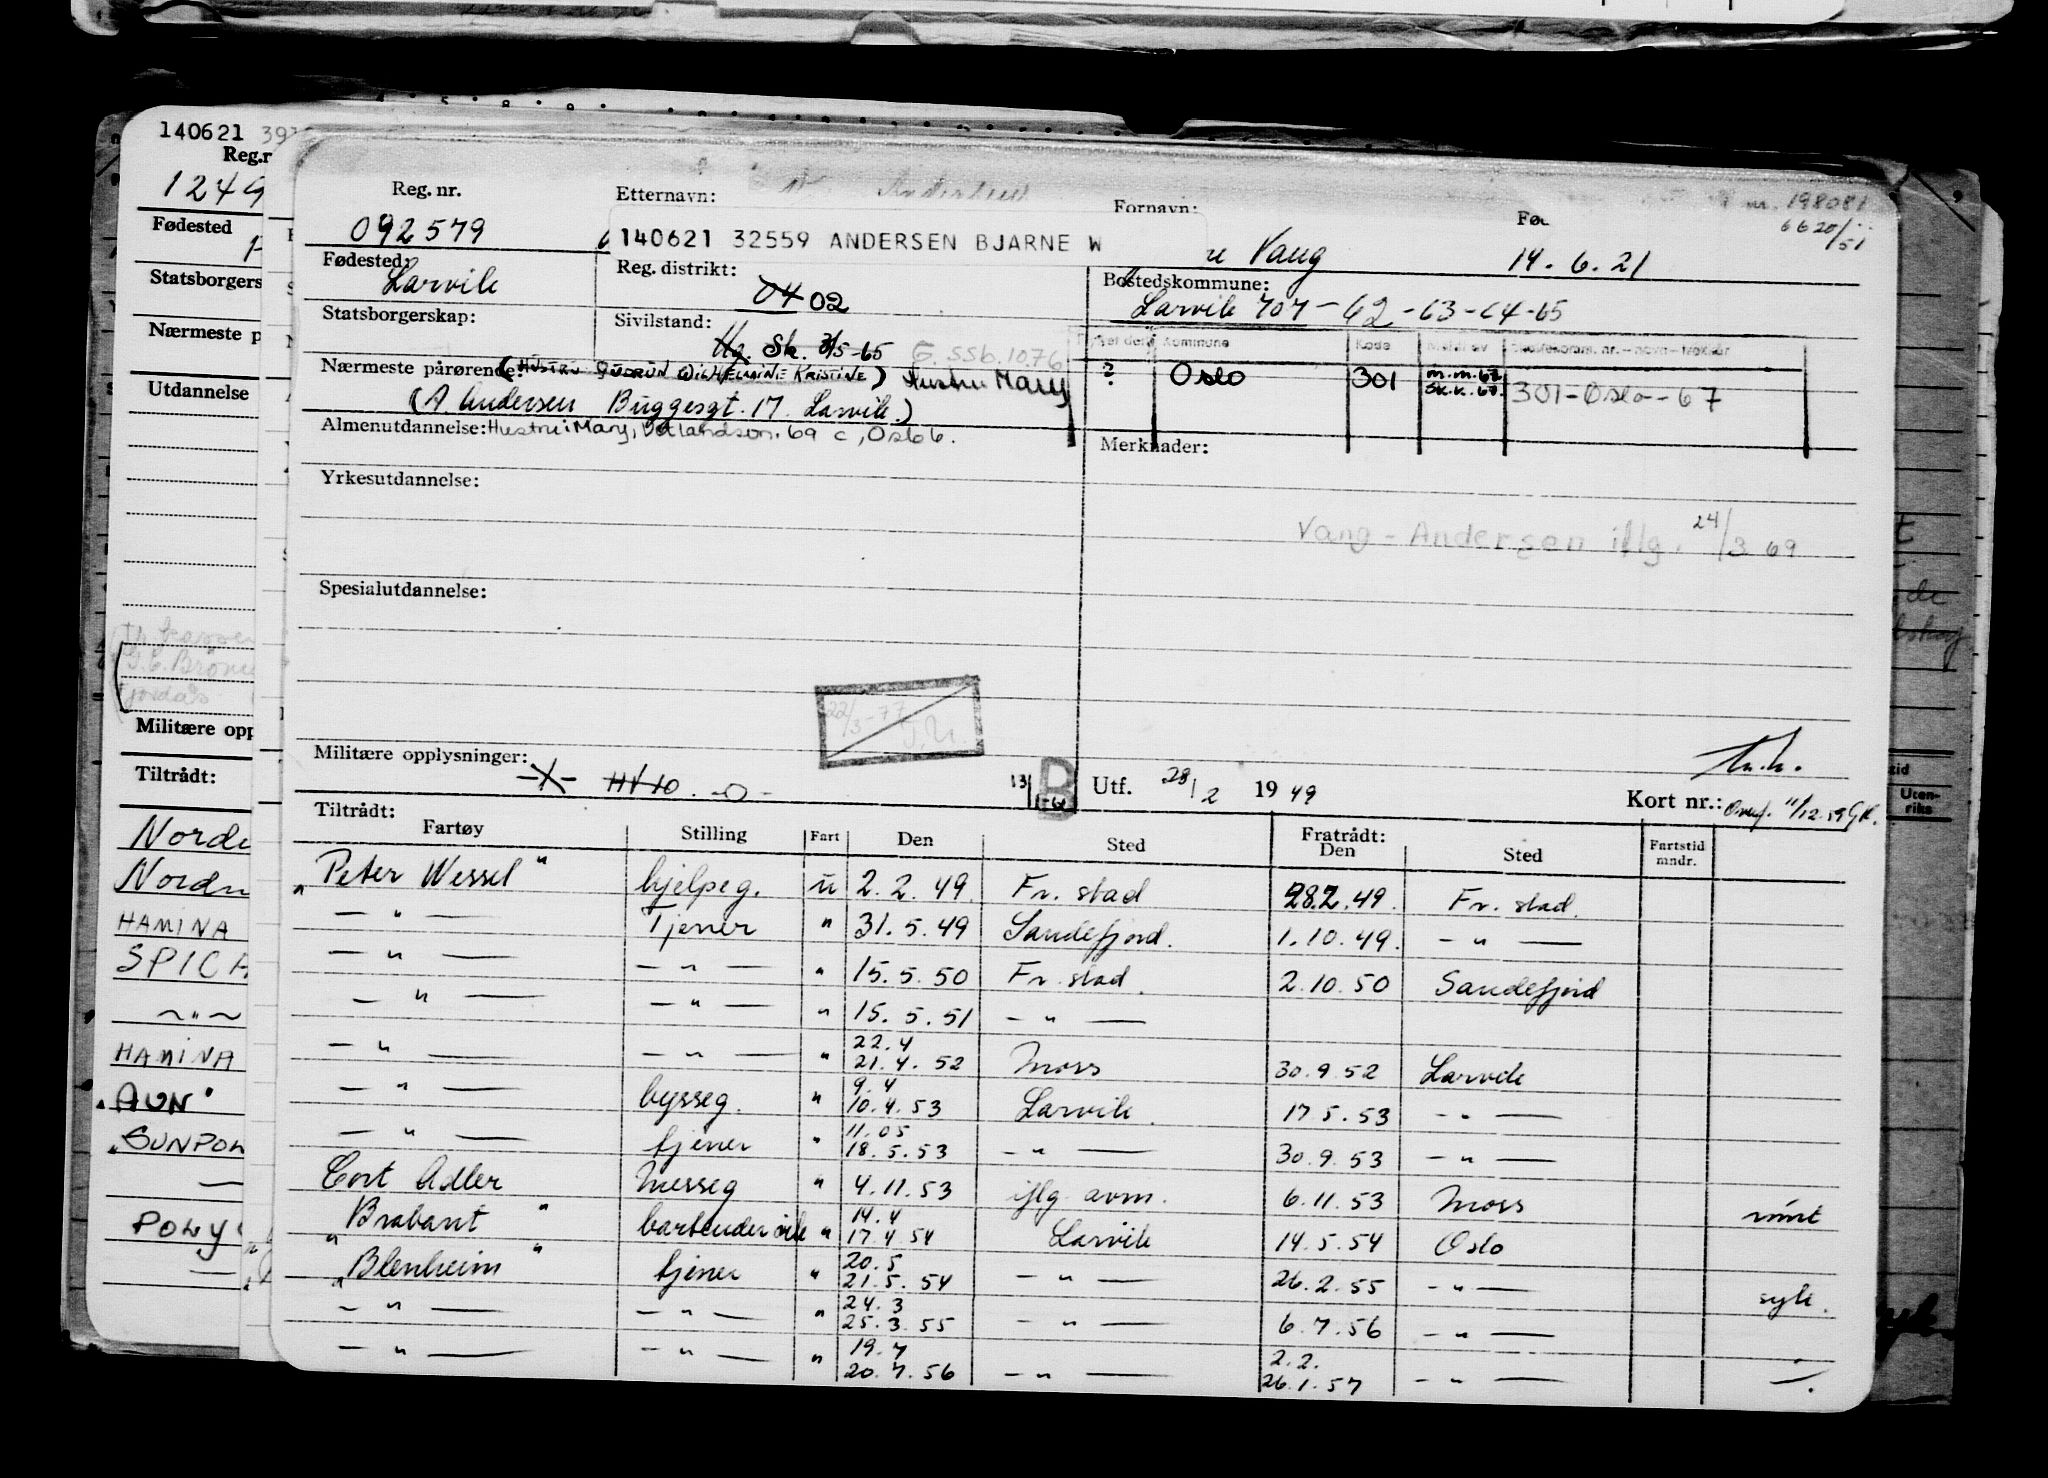 140621
Reg.r
1249
Fødested
Statsborgers
Nærmeste p
Utdannelse
Militære opp
Tiltrådt:
HAMINA
SPICA
HAMINA
"AUN"
"SUNPOW
POLY
Reg. nr. Etternavn: Fornavn: Fød nr. 198081
092579 140621 32559 ANDERSEN BJARNE W Vang 14.6.21 6620/51
Fødested: Reg. distrikt: Bostedskommune:
Larvik 04 02 Larvik 707 - 62 - 63 - 64 - 65
Statsborgerskap: Sivilstand: Kommune Kode
Ug. Sk. 3/5-65 G. ssb. 1076
Nærmeste pårørende: (HUSTRU GUDRUN WILHELMINE KRISTINE) Hustru Mary ? Oslo 301 m.m.67 Sk.k.67. 301-Oslo-67
(A Andersen Buggesgt. 17. Larvik.)
Almenutdannelse: Hustru: Mary, 69 c, Oslo 6. Merknader:
Yrkesutdannelse:
Vang-Andersen iflg. 24/3 69
Spesialutdannelse:
22/3-77
Militære opplysninger: HV10 -0- 13/ B Utf. 28/2 1949 Kort nr.: Overf. 11/12.59 GK.
Tiltrådt: Fartøy Stilling Fart Den Sted Fratrådt: Den Sted Fartstid mndr.
"Peter Wessel" hjelpeg. u 2.2.49 Fr.stad 28.2.49. Fr.stad.
— " — Tjener " 31.5.49 Sandefjord. 1.10.49. — " —
— " — — " — " 15.5.50 Fr.stad. 2.10.50 Sandefjord
— " — — " — " 15.5.51 — " —
— " — — " — " 22.4 21.4.52 Moss 30.9.52 Larvik
— " — bysseg. " 9.4 10.4.53 Larvik. 17.5.53 — " —
— " — tjener " 11.05 18.5.53 — " — 30.9.53 — " —
Cort Adler Messeg " 4.11.53 iflg. avm. 6.11.53 Moss rømt
"Brabant" bartender vik " 14.4 17.4.54 Larvik 14.5.54 Oslo
"Blenheim" tjener " 20.5 21.5.54 — " — 26.2.55 — " — syk.
— " — — " — " 24.3 25.3.55 — " — 6.7.56 — " —
— " — — " — " 19.7 20.7.56 — " — 2.2. 26.1.57 — " —
Uten-
riks